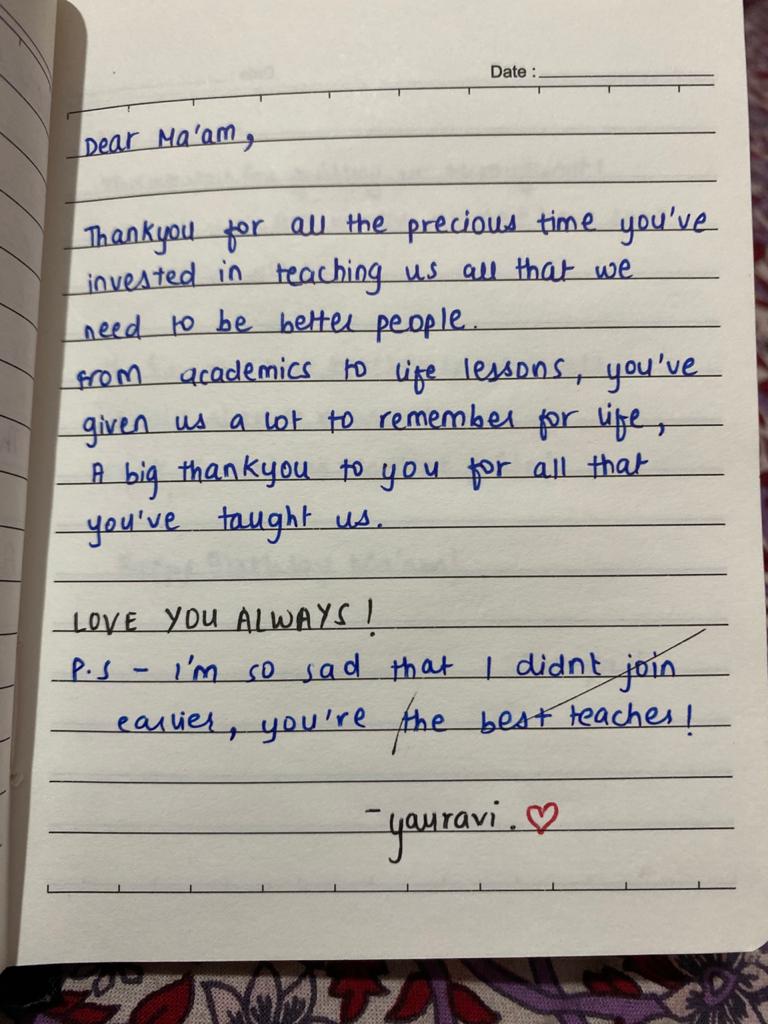 Date :
Dear Ma'am,
Thankyou for all the precious time you've
invested in teaching us all that we
need to be better people.
from academics to life lessons, you've
given us a lot to remember for life,
A big thankyou to you for all that
you've taught us.
LOVE YOU ALWAYS!
P.S - I'm so sad that I didnt join
earlier, you're the best teacher!
- yauravi. ♡